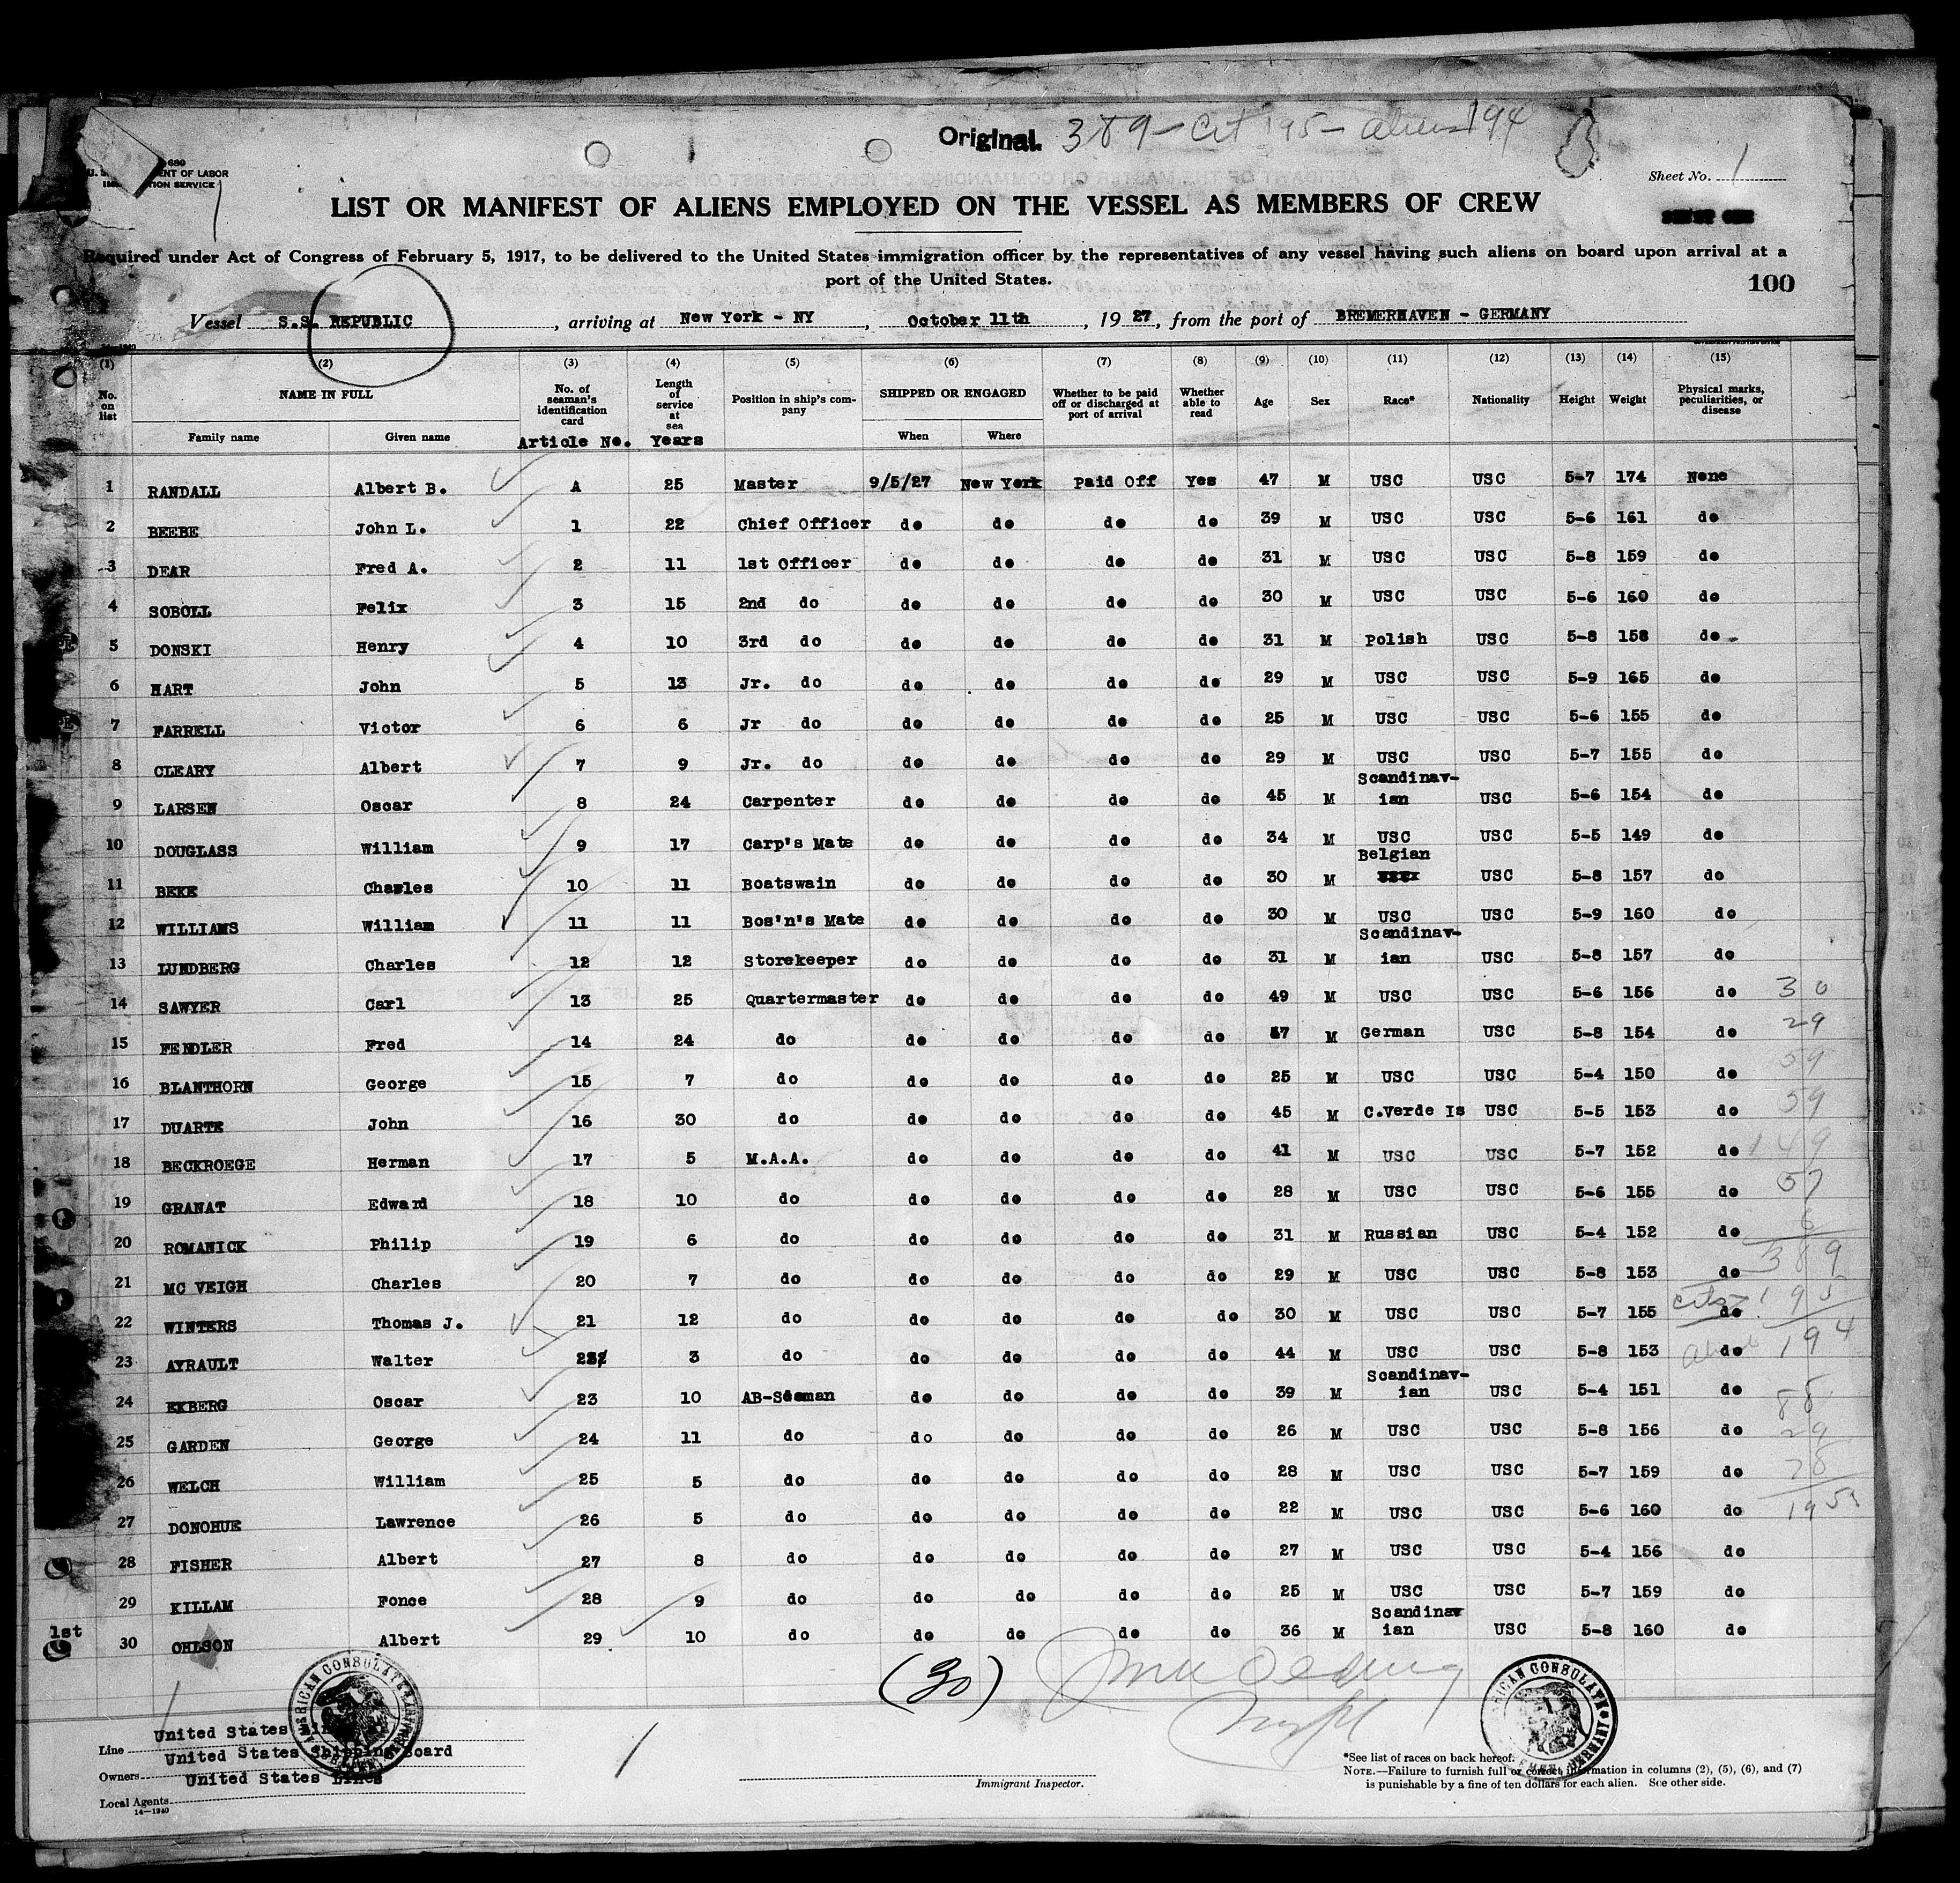 Original. 389 - Cit 195 - aliens 194
680
U. S. DEPARTMENT OF LABOR
IMMIGRATION SERVICE
Sheet No. 1
LIST OR MANIFEST OF ALIENS EMPLOYED ON THE VESSEL AS MEMBERS OF CREW
Required under Act of Congress of February 5, 1917, to be delivered to the United States immigration officer by the representatives of any vessel having such aliens on board upon arrival at a
port of the United States.
100
Vessel S.S. REPUBLIC, arriving at New York - NY, October 11th, 1927, from the port of BREMERHAVEN - GERMANY
(1) (2) (3) (4) (5) (6) (7) (8) (9) (10) (11) (12) (13) (14) (15)
No. on list NAME IN FULL No. of seaman's identification card Length of service at sea Position in ship's company SHIPPED OR ENGAGED Whether to be paid off or discharged at port of arrival Whether able to read Age Sex Race* Nationality Height Weight Physical marks, peculiarities, or disease
Family name Given name Article No. Years When Where
1 RANDALL Albert B. A 25 Master 9/5/27 New York Paid Off Yes 47 M USC USC 5-7 174 None
2 BEEBE John L. 1 22 Chief Officer do do do do 39 M USC USC 5-6 161 do
3 DEAR Fred A. 2 11 1st Officer do do do do 31 M USC USC 5-8 159 do
4 SOBOLL Felix 3 15 2nd do do do do do 30 M USC USC 5-6 160 do
5 DONSKI Henry 4 10 3rd do do do do do 31 M Polish USC 5-8 158 do
6 HART John 5 13 Jr. do do do do do 29 M USC USC 5-9 165 do
7 FARRELL Victor 6 6 Jr do do do do do 25 M USC USC 5-6 155 do
8 CLEARY Albert 7 9 Jr. do do do do do 29 M USC USC 5-7 155 do
9 LARSEN Oscar 8 24 Carpenter do do do do 45 M Scandinav-ian USC 5-6 154 do
10 DOUGLASS William 9 17 Carp's Mate do do do do 34 M USC USC 5-5 149 do
11 BEKE Charles 10 11 Boatswain do do do do 30 M Belgian USC 5-8 157 do
12 WILLIAMS William 11 11 Bos'n's Mate do do do do 30 M USC USC 5-9 160 do
13 LUNDBERG Charles 12 12 Storekeeper do do do do 31 M Scandinav-ian USC 5-8 157 do
14 SAWYER Carl 13 25 Quartermaster do do do do 49 M USC USC 5-6 156 do 30
15 FENDLER Fred 14 24 do do do do do M German USC 5-8 154 do 29
16 BLANTHORN George 15 7 do do do do do 25 M USC USC 5-4 150 do 59
17 DUARTE John 16 30 do do do do do 45 M C.Verde Is USC 5-5 153 do 59
18 BECKROEGE Herman 17 5 M.A.A. do do do do 41 M USC USC 5-7 152 do 149
19 GRANAT Edward 18 10 do do do do do 28 M USC USC 5-6 155 do 57
20 ROMANICK Philip 19 6 do do do do do 31 M Russian USC 5-4 152 do 6
21 MC VEIGH Charles 20 7 do do do do do 29 M USC USC 5-8 153 do 389
22 WINTERS Thomas J. 21 12 do do do do do 30 M USC USC 5-7 155 do cits 195
23 AYRAULT Walter 22 3 do do do do do 44 M USC USC 5-8 153 do 194
24 EKBERG Oscar 23 10 AB-Seaman do do do do 39 M Scandinav-ian USC 5-4 151 do 88
25 GARDEN George 24 11 do do do do do 26 M USC USC 5-8 156 do 29
26 WELCH William 25 5 do do do do do 28 M USC USC 5-7 159 do 78
27 DONOHUE Lawrence 26 5 do do do do do 22 M USC USC 5-6 160 do 195
28 FISHER Albert 27 8 do do do do do 27 M USC USC 5-4 156 do
29 KILLAM Ponce 28 9 do do do do do 25 M USC USC 5-7 159 do
1st 30 OHLSON Albert 29 10 do do do do do 36 M Scandinav ian USC 5-8 160 do
(30)
AMERICAN CONSULATE
AMERICAN CONSULATE
Line United States Lines
Owners United States Shipping Board
Local Agents United States Lines
14-1240
Immigrant Inspector.
*See list of races on back hereof.
NOTE.—Failure to furnish full or correct information in columns (2), (5), (6), and (7)
is punishable by a fine of ten dollars for each alien. See other side.